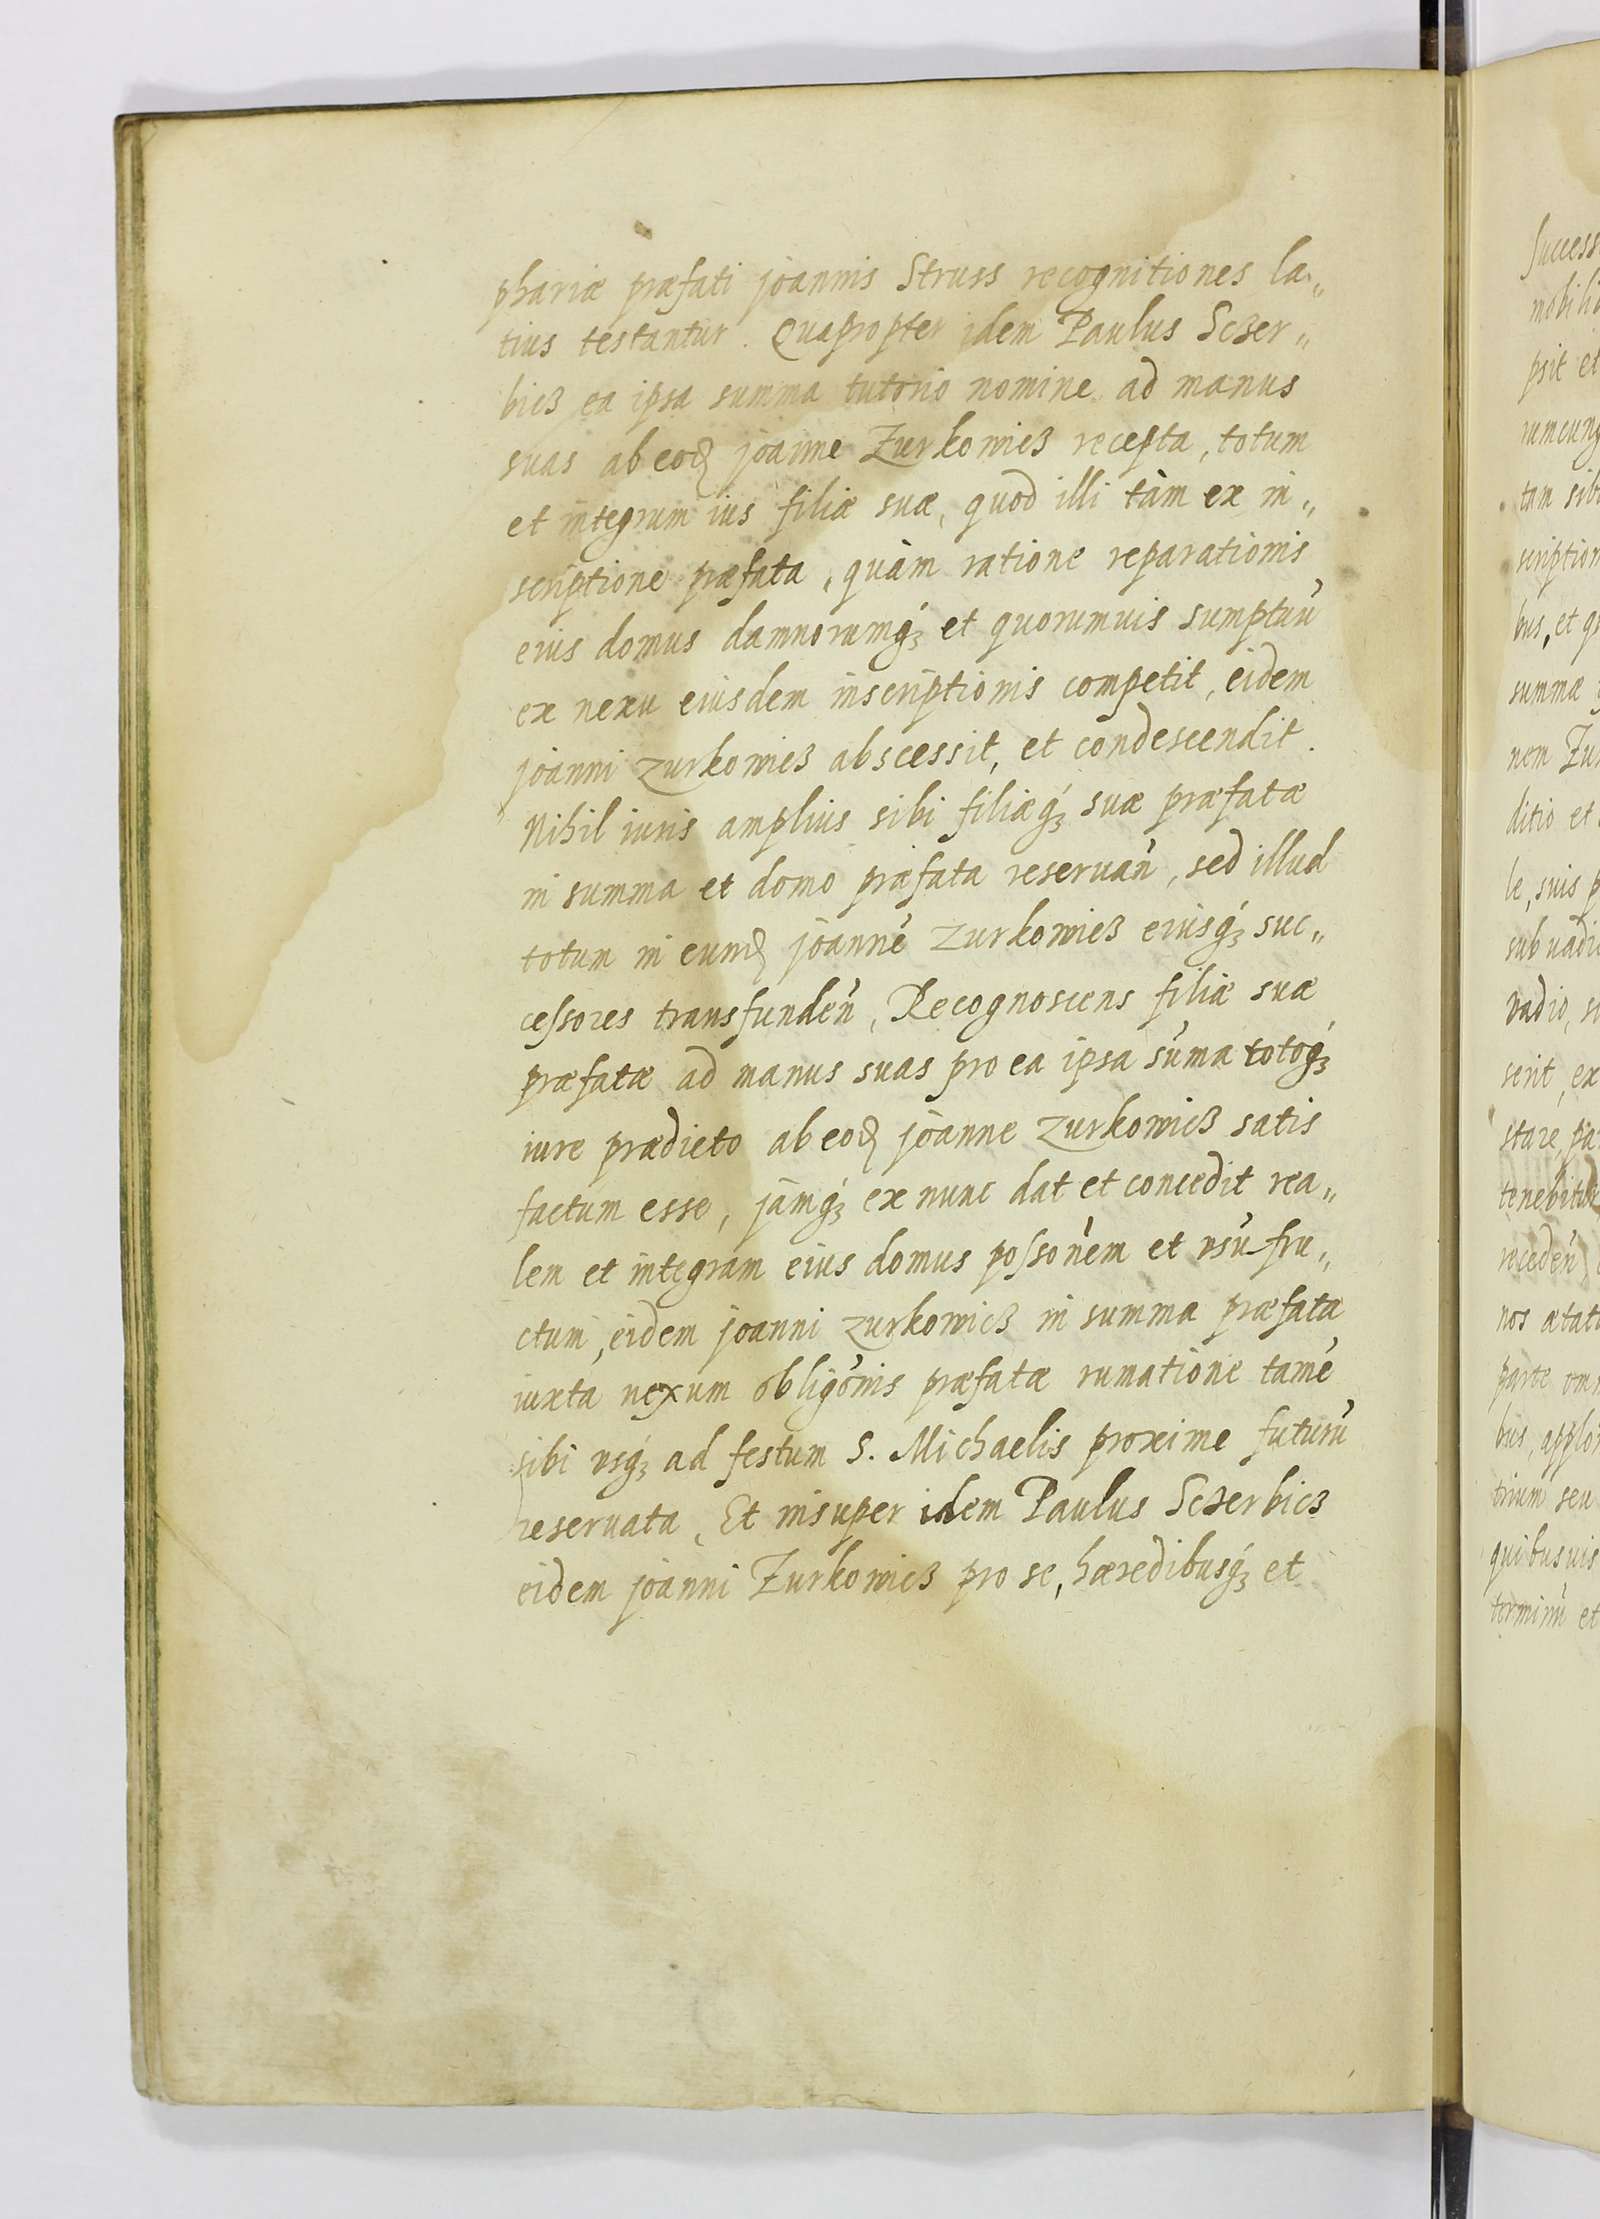 phariæ præfati joannis Struss recognitiones la„
tius testantur. Quapropter idem Paulus Sczer„
bicz ea ipsa summa tutorio nomine ad manus
suas ab eod joanne Zurkowicz recepta, totum
et integrum ius filiæ suæ, quod illi tàm ex in„
scriptione præfata, quàm ratione reparationis
eius domus damnorumq́ꝫ et quorumuis sumptuū
ex nexu eiusdem inscriptionis competit, eidem
joanni zurkowicz abscessit, et condescendit.
Nihil iuris amplius sibi filiæq́ꝫ suæ præfatæ
in summa et domo præfata reseruan̄, sed illud
totum in eund joannē zurkowicz eiusq́ꝫ suc„
cessores transfunden̄, Recognoscens filiæ suæ
præfatæ ad manus suas pro ea ipsa sūma totoq́ꝫ
iure prædicto ab eod joanne zurkowicz satis
factum esse, jàmq́ꝫ ex nunc dat et concedit rea„
lem et integram eius domus possōnem et vsū fru„
ctum, eidem joanni zurkowicz in summa præfata
iuxta nexum obligōnis præfatæ rumatione tamē
sibi vsq́ꝫ ad festum S. Michaelis proxime futurū
reseruata, Et insuper idem Paulus Sczerbicz
eidem joanni Zurkowicz pro se, hæredibusq́ꝫ et
success
mobili
psit et
rumcunq
tam sib
scription
bus, et q
summæ
nem Zu
ditio et
le, suis p
sub uadi
vadio, s
serit, ex
stare, pa
tenebitur
roceden̄
nos ætat
parte om
bus, applo
trium seu
quibusuis
terminū et